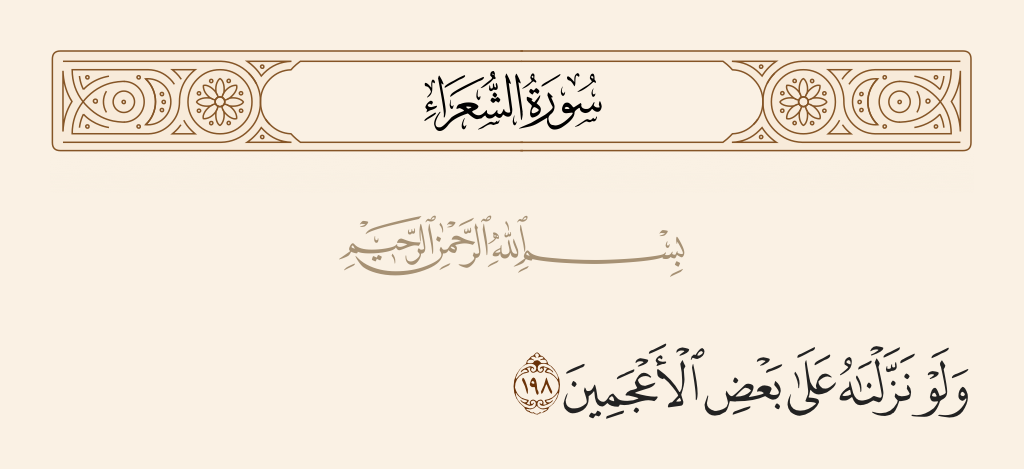 سُورَةُ الشُّعَرَاءِ
بِسْمِ ٱللَّهِ ٱلرَّحْمَٰنِ ٱلرَّحِيمِ
وَلَوْ نَزَّلْنَٰهُ عَلَىٰ بَعْضِ ٱلْأَعْجَمِينَ ١٩٨